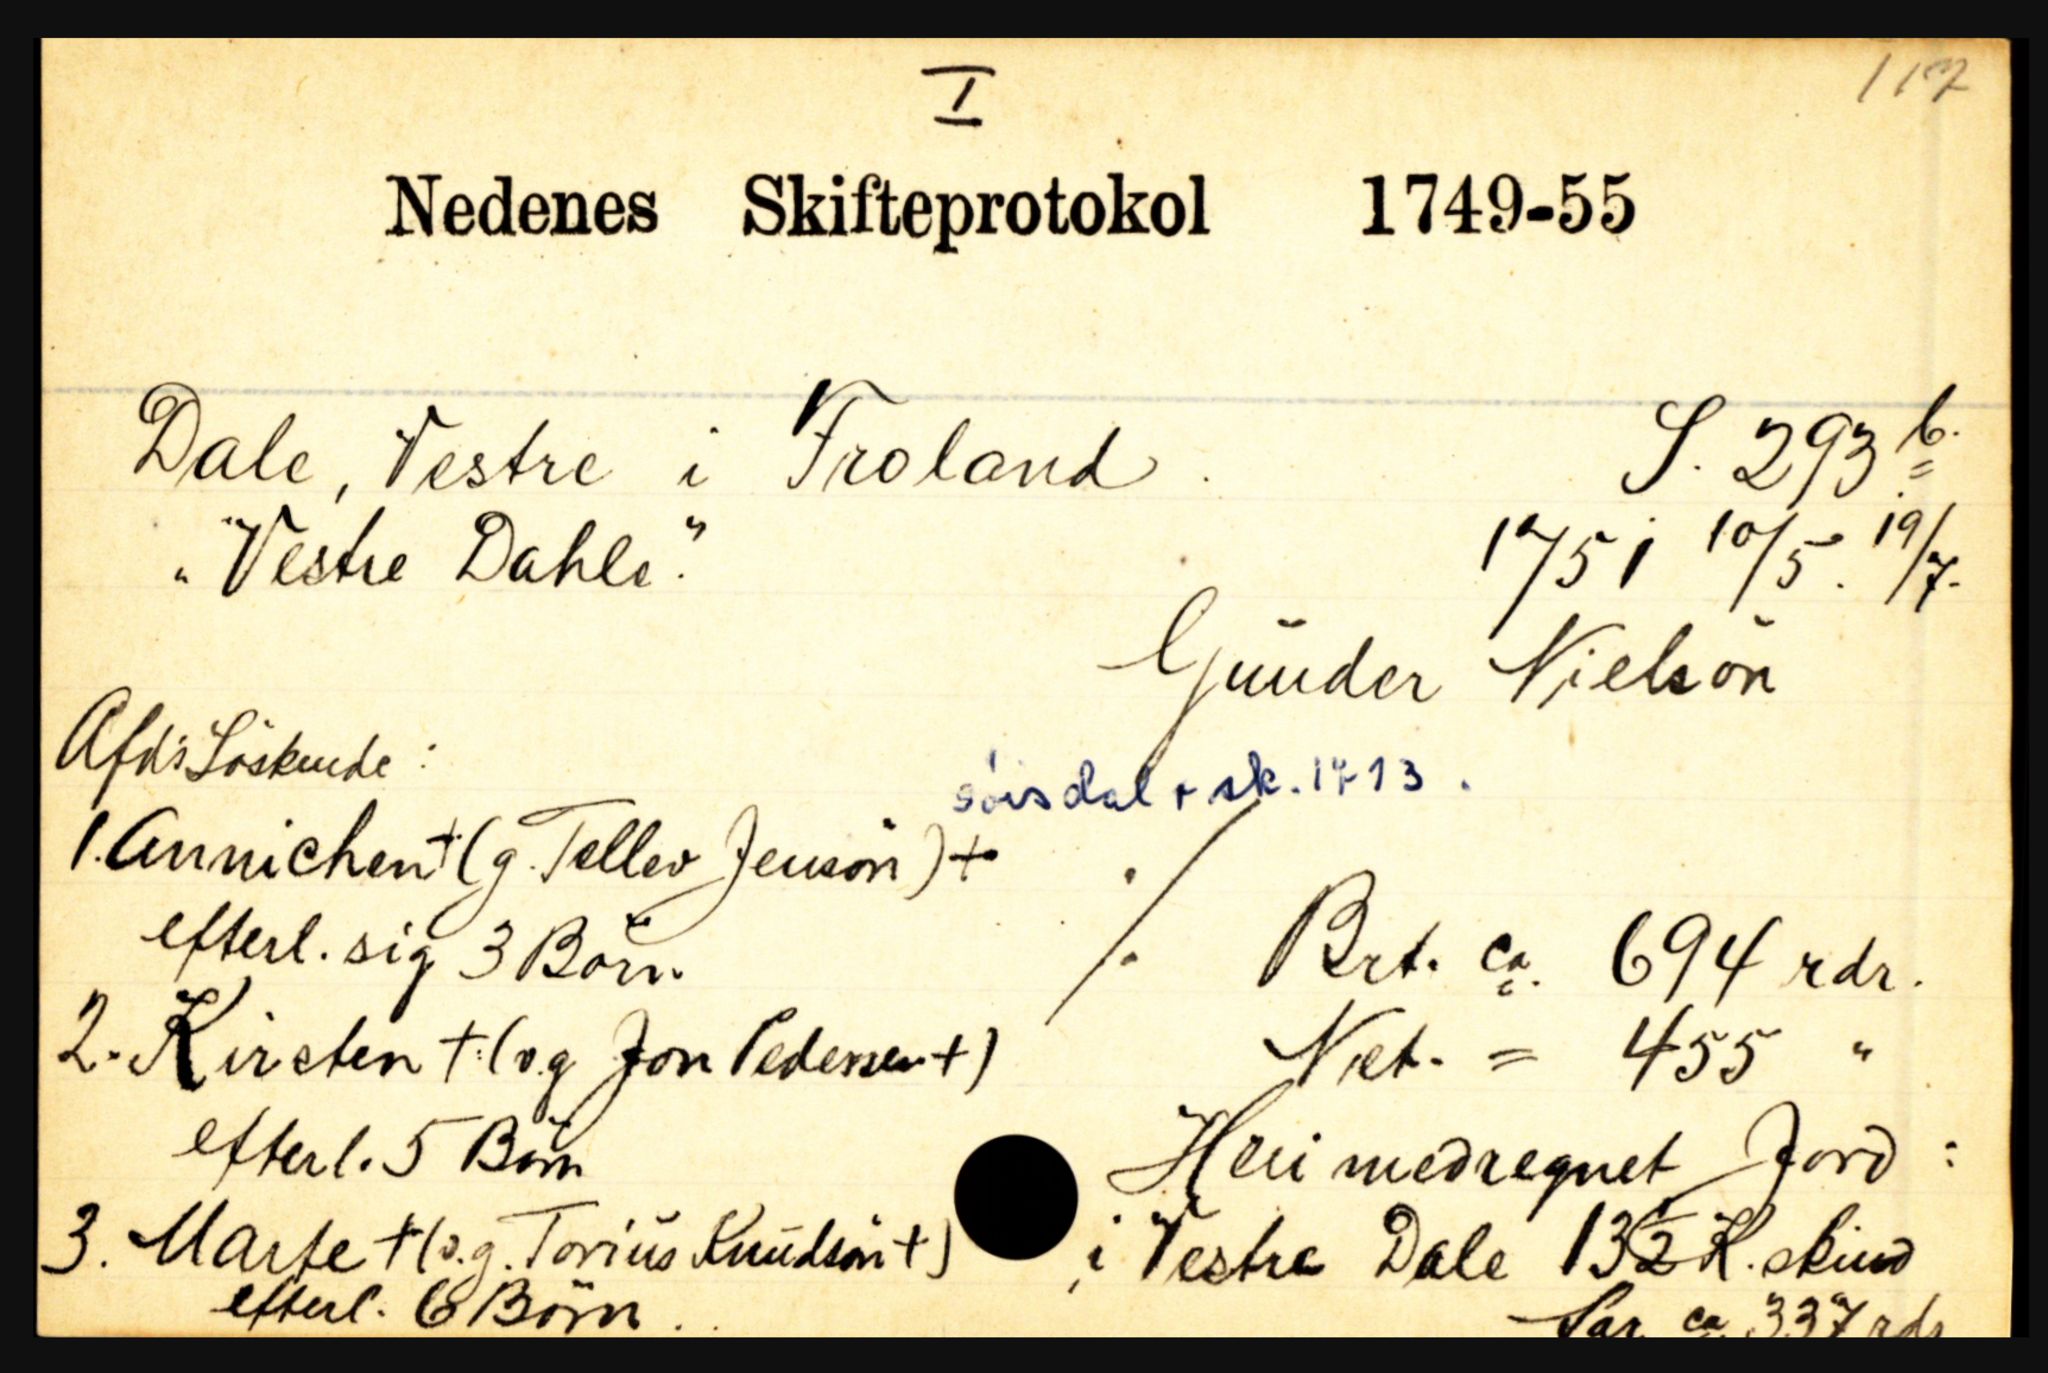 117
I
Nedenes Skifteprotokol 1749-55
Dale, Vestre i Froland. S. 293 b.
"Vestre Dahle". 1751 10/5. 19/7.
Gŭnder Nielsön
Afd's Söskende:
sk. 1713.
1. Annichen + (g. Tellev Jensön) +
efterl. sig 3 Börn.
Brt. ca. 694 rdr.
2. Kirsten + (v.g Jon Pedersen +)
Net. = 455 "
efterl. 5 Börn
Heri medregnet Jord:
3. Marte + (v.g. Toriŭs Knŭdsön +)
i Vestre Dale 13½ K. skind
efterl. 6 Börn.
ca 337 rdr